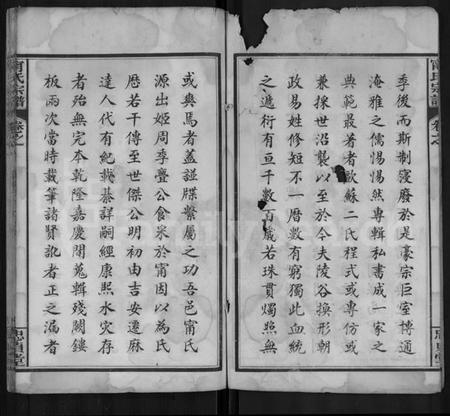 甯氏宗譜
卷之
季後而斯制寖廢於是豪宗巨室博通
淹雅之儒惕惕然專輯私書成一家之
典範最著者歐蘇二氏程式或專仿或
兼採世沿襲以至於今夫陵谷換形朝
政易姓修短不一曆數有窮獨此血統
之遞衍有亘千數百歲若珠貫燭照無
或與焉者蓋譜牒繫屬之功吾邑甯氏
源出姬周季亹公食采於甯因以為氏
歷若干傳至世傑公明初由吉安遷麻
達人代有紀載綦詳嗣經康熙水災存
者殆無完本乾隆嘉慶間蒐輯殘闕鏤
板兩次當時載筆諸賢訛者正之漏者
甯氏宗譜
卷之